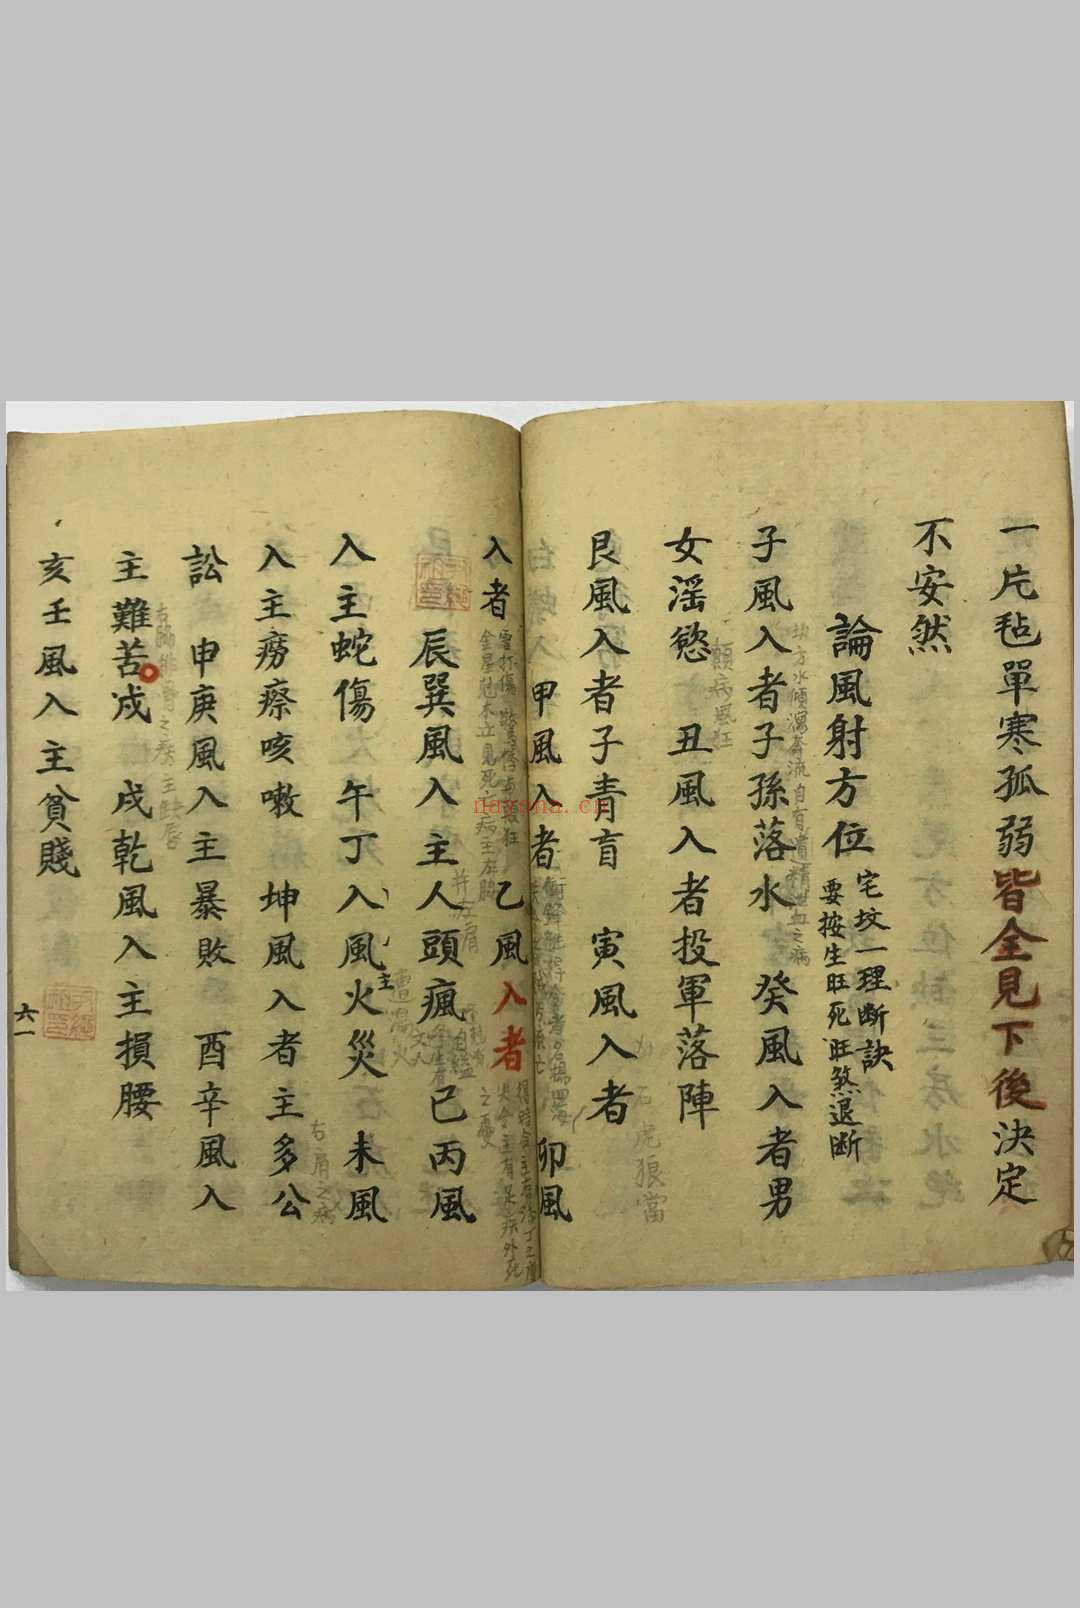 一片毡單寒孤弱皆全見下後決定
不安然
論風射方位
宅坟一理斷訣
要按生旺死旺煞退斷
子風入者子孫落水　癸風入者男
坎方水傾瀉奔流自有遺精泄血之病
女淫慾　丑風入者投軍落陣
顛病風狂
艮風入者子青盲　寅風入者
虎狼當
甲風入者　卯風
入者　乙風入者
金星尅木立見死亡病主左脇
辰巽風入主人頭瘋　巳丙風
并左肩
入主蛇傷　午丁入風主火災　未風
遭湯火
入主癆瘵咳嗽　坤風入者主多公
右肩之病
訟　申庚風入主暴敗　酉辛風入
主難苦　戍　戌乾風入主損腰
之病主缺唇
亥壬風入主貧賤
六一
nayona.cn